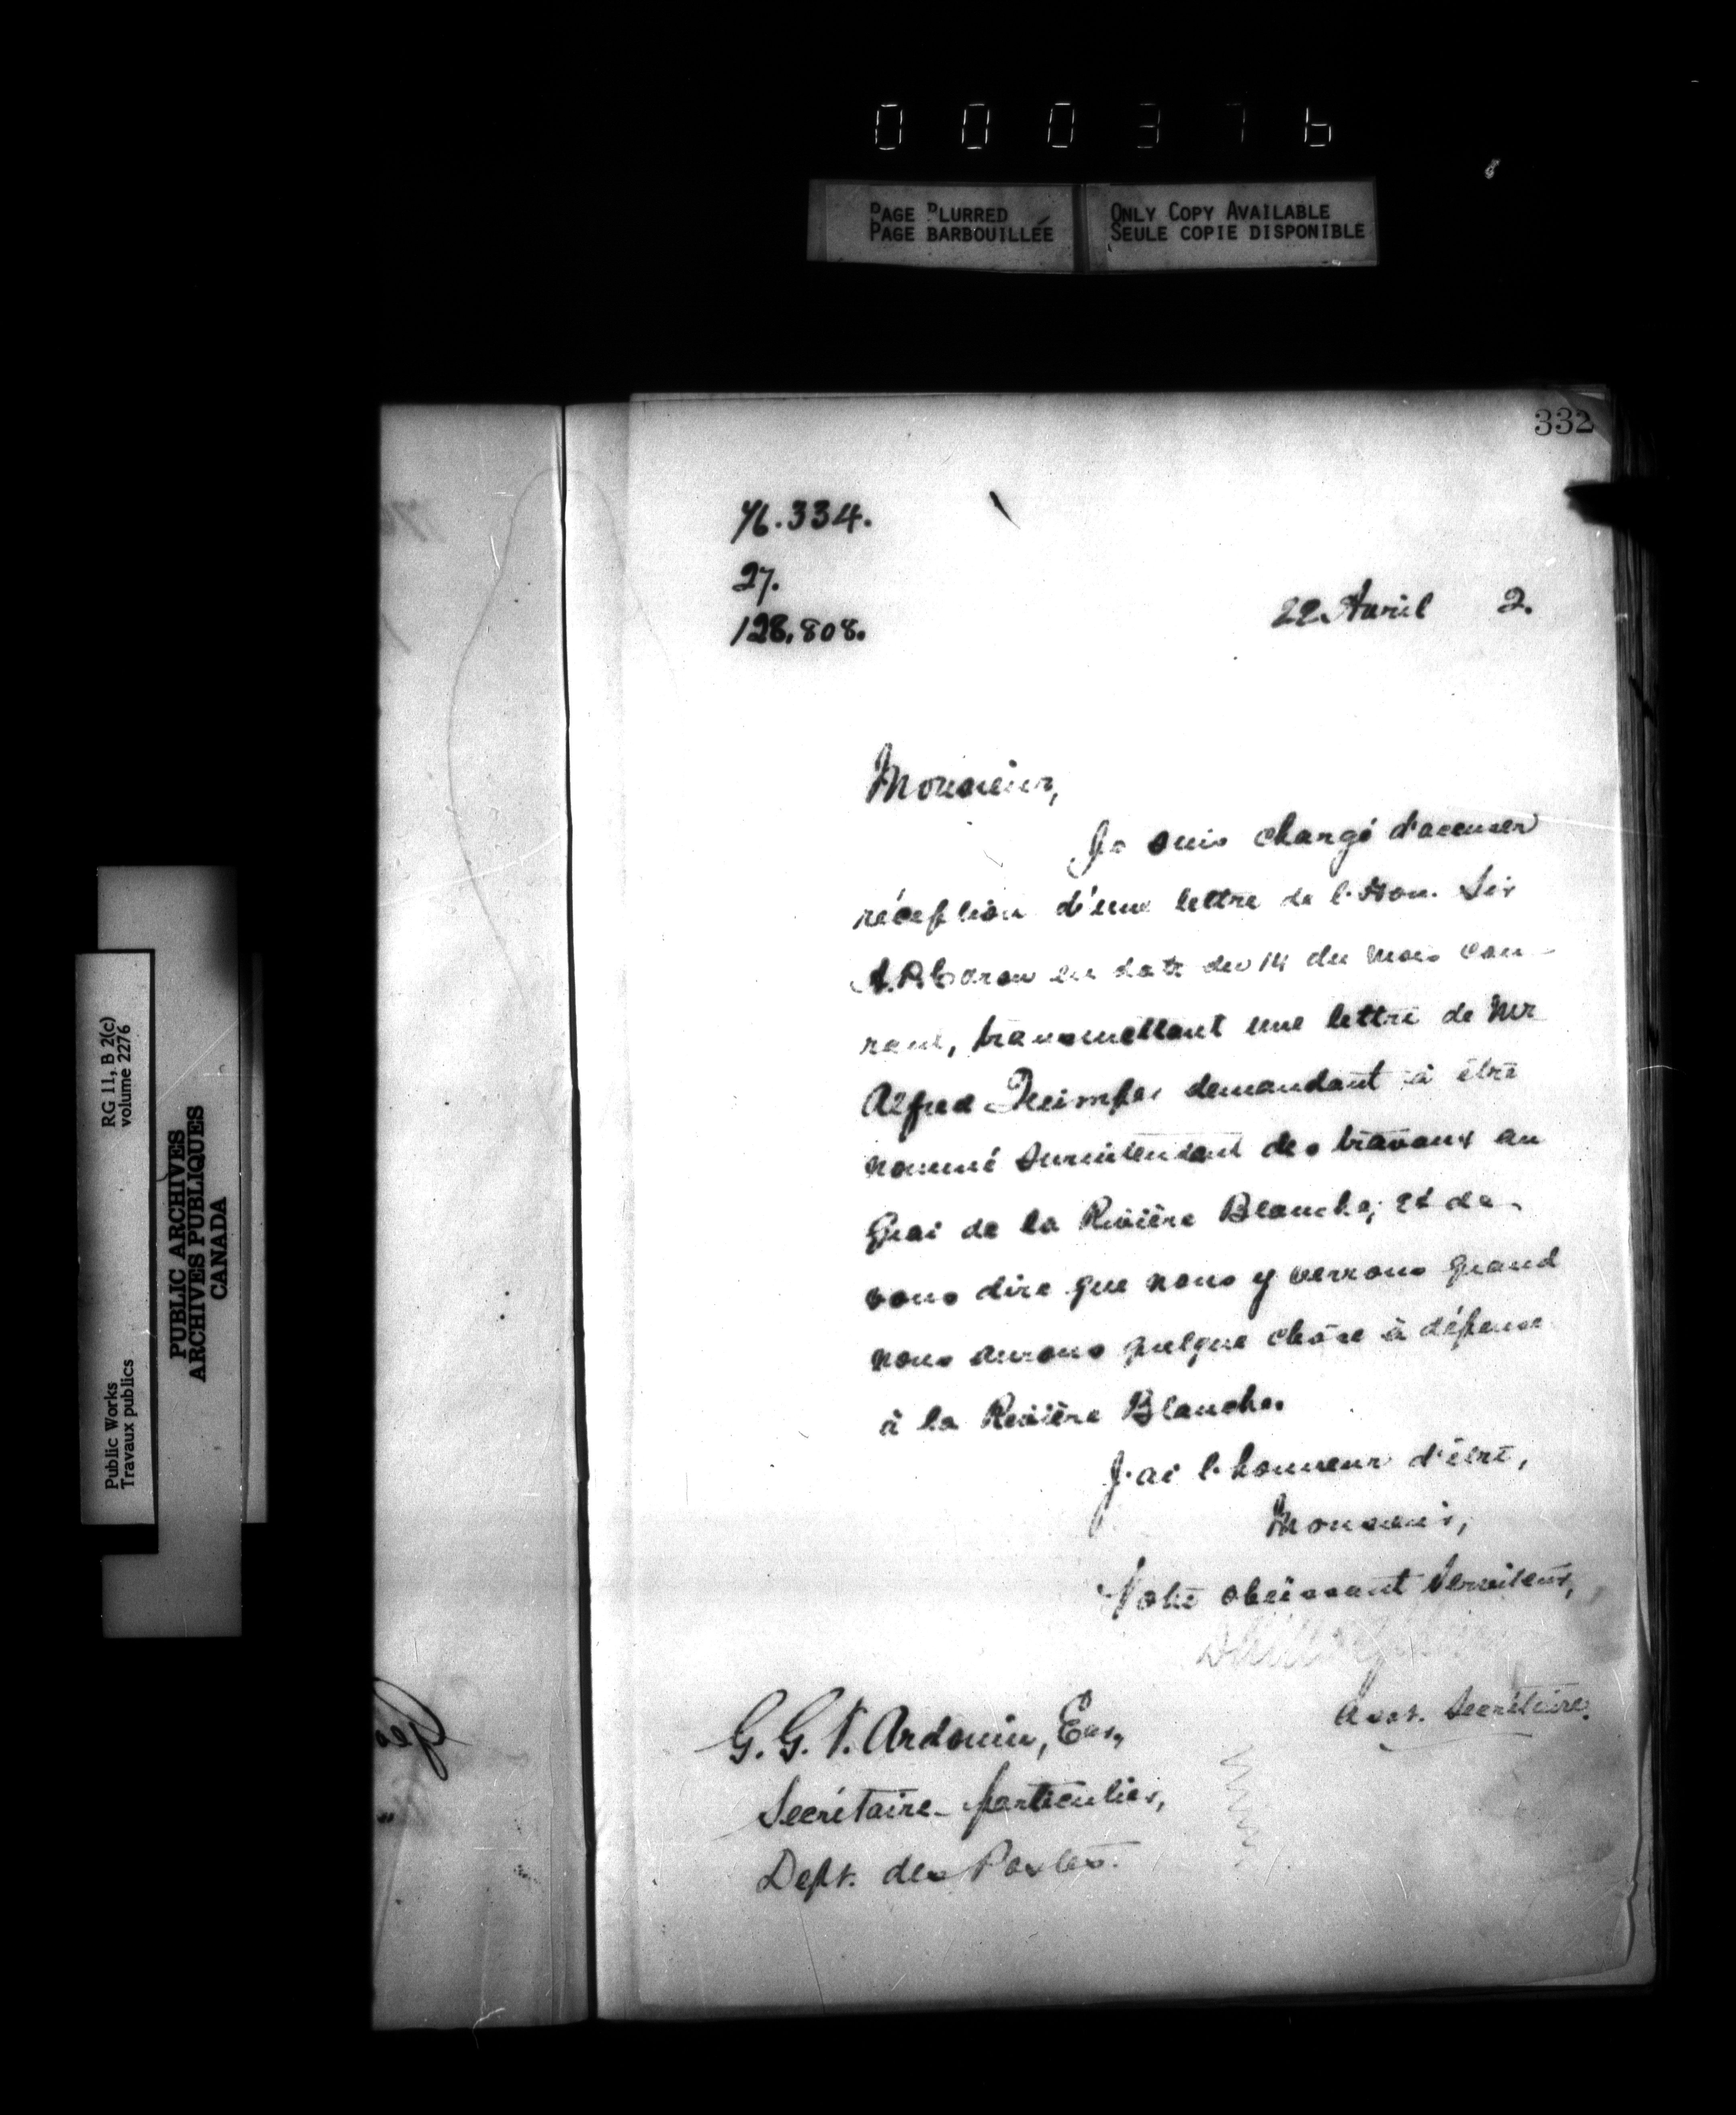 000376
PAGE BLURRED
PAGE BARBOUILLÉE
ONLY COPY AVAILABLE
SEULE COPIE DISPONIBLE
332
76.334.
27.
128.808.
22 Avril 2.
Monsieur,
Je suis chargé d'accuser
réception d'une lettre de l'Hon. Sir
A.P. Caron en date du 14 du mois cou-
rant, transmettant une lettre de Mr
Alfred demandant à être
nommé Surintendant des travaux au
Quai de la Rivière Blanche; et de
vous dire que nous y verrons quand
nous aurons quelque chose à dépenser
à la Rivière Blanche.
J'ai l'honneur d'être,
Monsieur,
Votre obéissant Serviteur,
Asst. Secrétaire.
G. G. V. Ardouin, Esq.,
Secrétaire-particulier,
Dept. des Postes.
RG 11, B 2(c)
volume 2276
Public Works
Travaux publics
PUBLIC ARCHIVES
ARCHIVES PUBLIQUES
CANADA